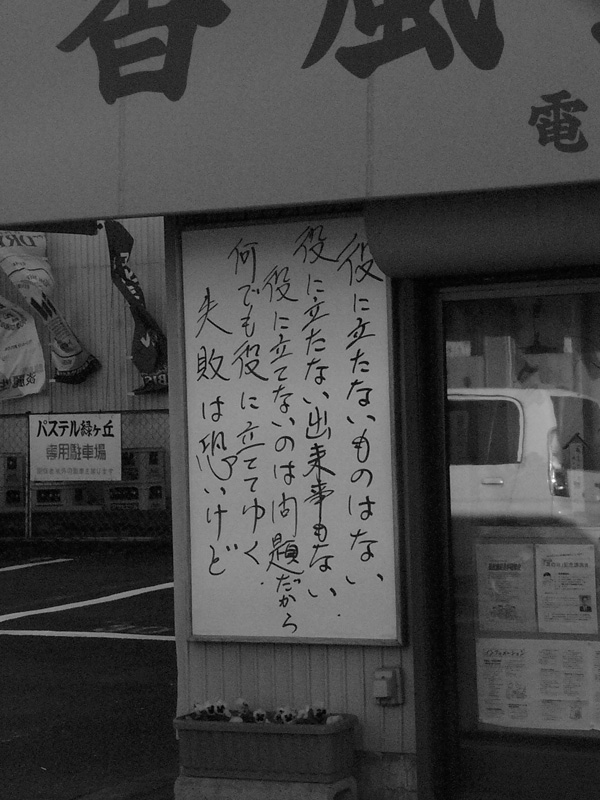 香風
電
役に立たないものはない
役に立たない出来事もない.
役に立てないのは問題だから
何でも役に立ててゆく.
失敗は恐いけど
DRY
パステル緑ヶ丘
専用駐車場
インフォメーション